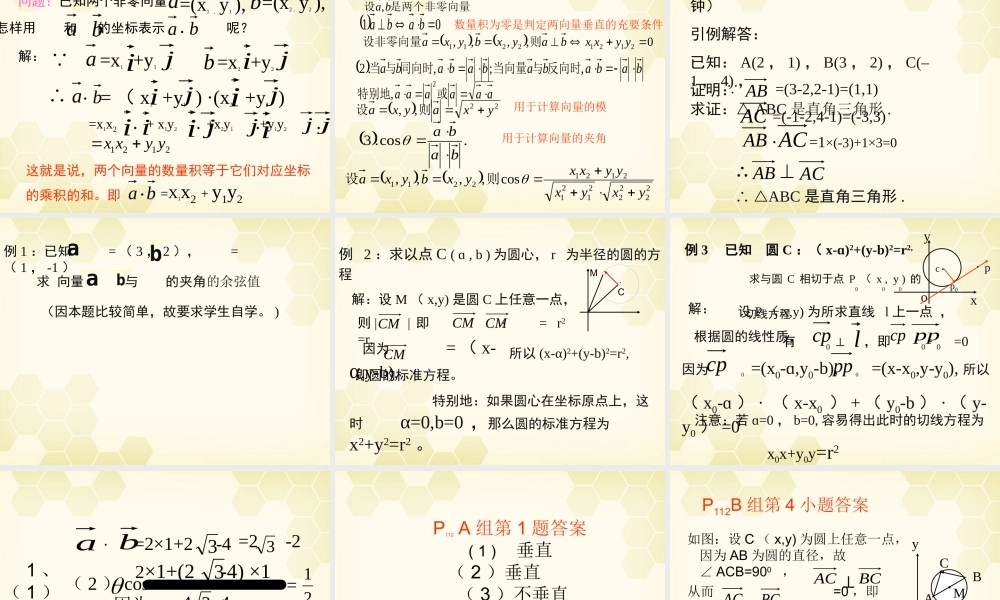 问题：已知两个非零向量a=(x₁ y₁), b=(x₂ y₂),
怎样用 a 和 b 的坐标表示 a·b 呢？
解： ∵ a=x₁i+y₁j b=x₂i+y₂j
∴ a·b=（x₁i+y₁j)·(x₂i+y₂j)
=x₁x₂ i·i + x₁y₂ i·j +x₂y₁ j·i +y₁y₂ j·j
=x₁x₂ + y₁y₂
这就是说，两个向量的数量积等于它们对应坐标
的乘积的和。即 a·b =x₁x₂ + y₁y₂
设a,b是两个非零向量
(1)a⊥b⇔a·b=0 数量积为零是判定两向量垂直的充要条件
设非零向量a=(x₁,y₁),b=(x₂,y₂),则a⊥b⇔x₁x₂+y₁y₂=0
(2)当a与b同向时,a·b=|a|·|b|;当向量a与b反向时,a·b=-|a|·|b|
特别地,a·a=|a|²或|a|=√a·a
设a=(x,y),则|a|=√x²+y² 用于计算向量的模
(3)cosθ=a·b/|a|·|b|. 用于计算向量的夹角
设a=(x₁,y₁),b=(x₂,y₂),则cosθ=x₁x₂+y₁y₂/√x₁²+y₁²√x₂²+y₂²
钟）
引例解答：
已知：A(2 ，1)，B(3 ，2)，C(–
1 ，4)，
求证：△ ABC 是直角三角形 .
证明：AB =(3-2,2-1)=(1,1)
AC =(-1-2,4-1)=(-3,3)
AB·AC =1×(-3)+1×3=0
∴ AB ⊥ AC
∴ △ABC 是直角三角形 .
例 1：已知a =（3，2），b =
（1，-1）
求 向量a 与b 的夹角的余弦值
（因本题比较简单，故要求学生自学。 ）
例 2：求以点 C ( ɑ , b ) 为圆心， r 为半径的圆的方
程
M
C
解：设 M （ x,y) 是圆 C 上任意一点，
则 |CM| =r 即 CM · CM = r²
因为 CM =（ x-ɑ,y-b), 所以 (x-ɑ)²+(y-b)²=r²,
即圆的标准方程。
特别地：如果圆心在坐标原点上，这
时 ɑ=0,b=0 ，那么圆的标准方程为
x²+y²=r² 。
例 3 已知 圆 C：（ x-ɑ)²+(y-b)²=r²,
求与圆 C 相切于点 P₀（ x₀ , y₀ ) 的
切线方程
y
c
p
p₀
o
x
解： 设 P （x,y) 为所求直线 l 上一点 ，
根据圆的线性质，有 cp₀ ⊥ l ，即 cp₀ · pp₀ =0
因为 cp₀ =(x₀-ɑ,y₀-b), pp₀ =(x-x₀,y-y₀), 所以
（ x₀-ɑ ）·（ x-x₀ ）+（ y₀-b ）·（ y-
y₀ ）=0
注意：若 ɑ=0 ，b=0, 容易得出此时的切线方程为
x₀x+y₀y=r²
a · b =2×1+2 √3-4 =2 √3 -2
1 、
（ 1 ）
（ 2 ）cosθ= 2×1+(2 √3-4) ×1 = 1/2
P₁₁₂ A 组第 1 题答案
( 1 ) 垂直
（ 2 ）垂直
（ 3 ）不垂直
P₁₁₂B 组第 4 小题答案
如图：设 C （ x,y) 为圆上任意一点，
因为 AB 为圆的直径，故
∠ ACB=90⁰ ，
从而 AC ⊥ BC
AC · BC =0 ，即
y
C
B
M
A